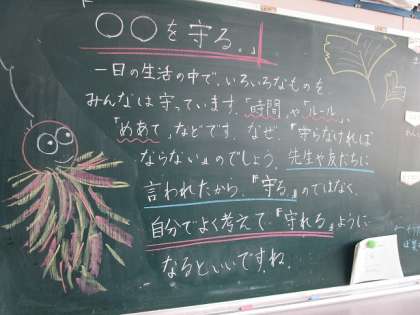 「○○を守る。」
一日の生活の中で、いろいろなものを
みんなは守っています。「時間」や「ルール」、
「めあて」などです。なぜ、『守らなければ
ならない』のでしょう。先生や友だちに
言われたから、『守る』のではなく、
自分でよく考えて『守れる』ように
なるといいですね。